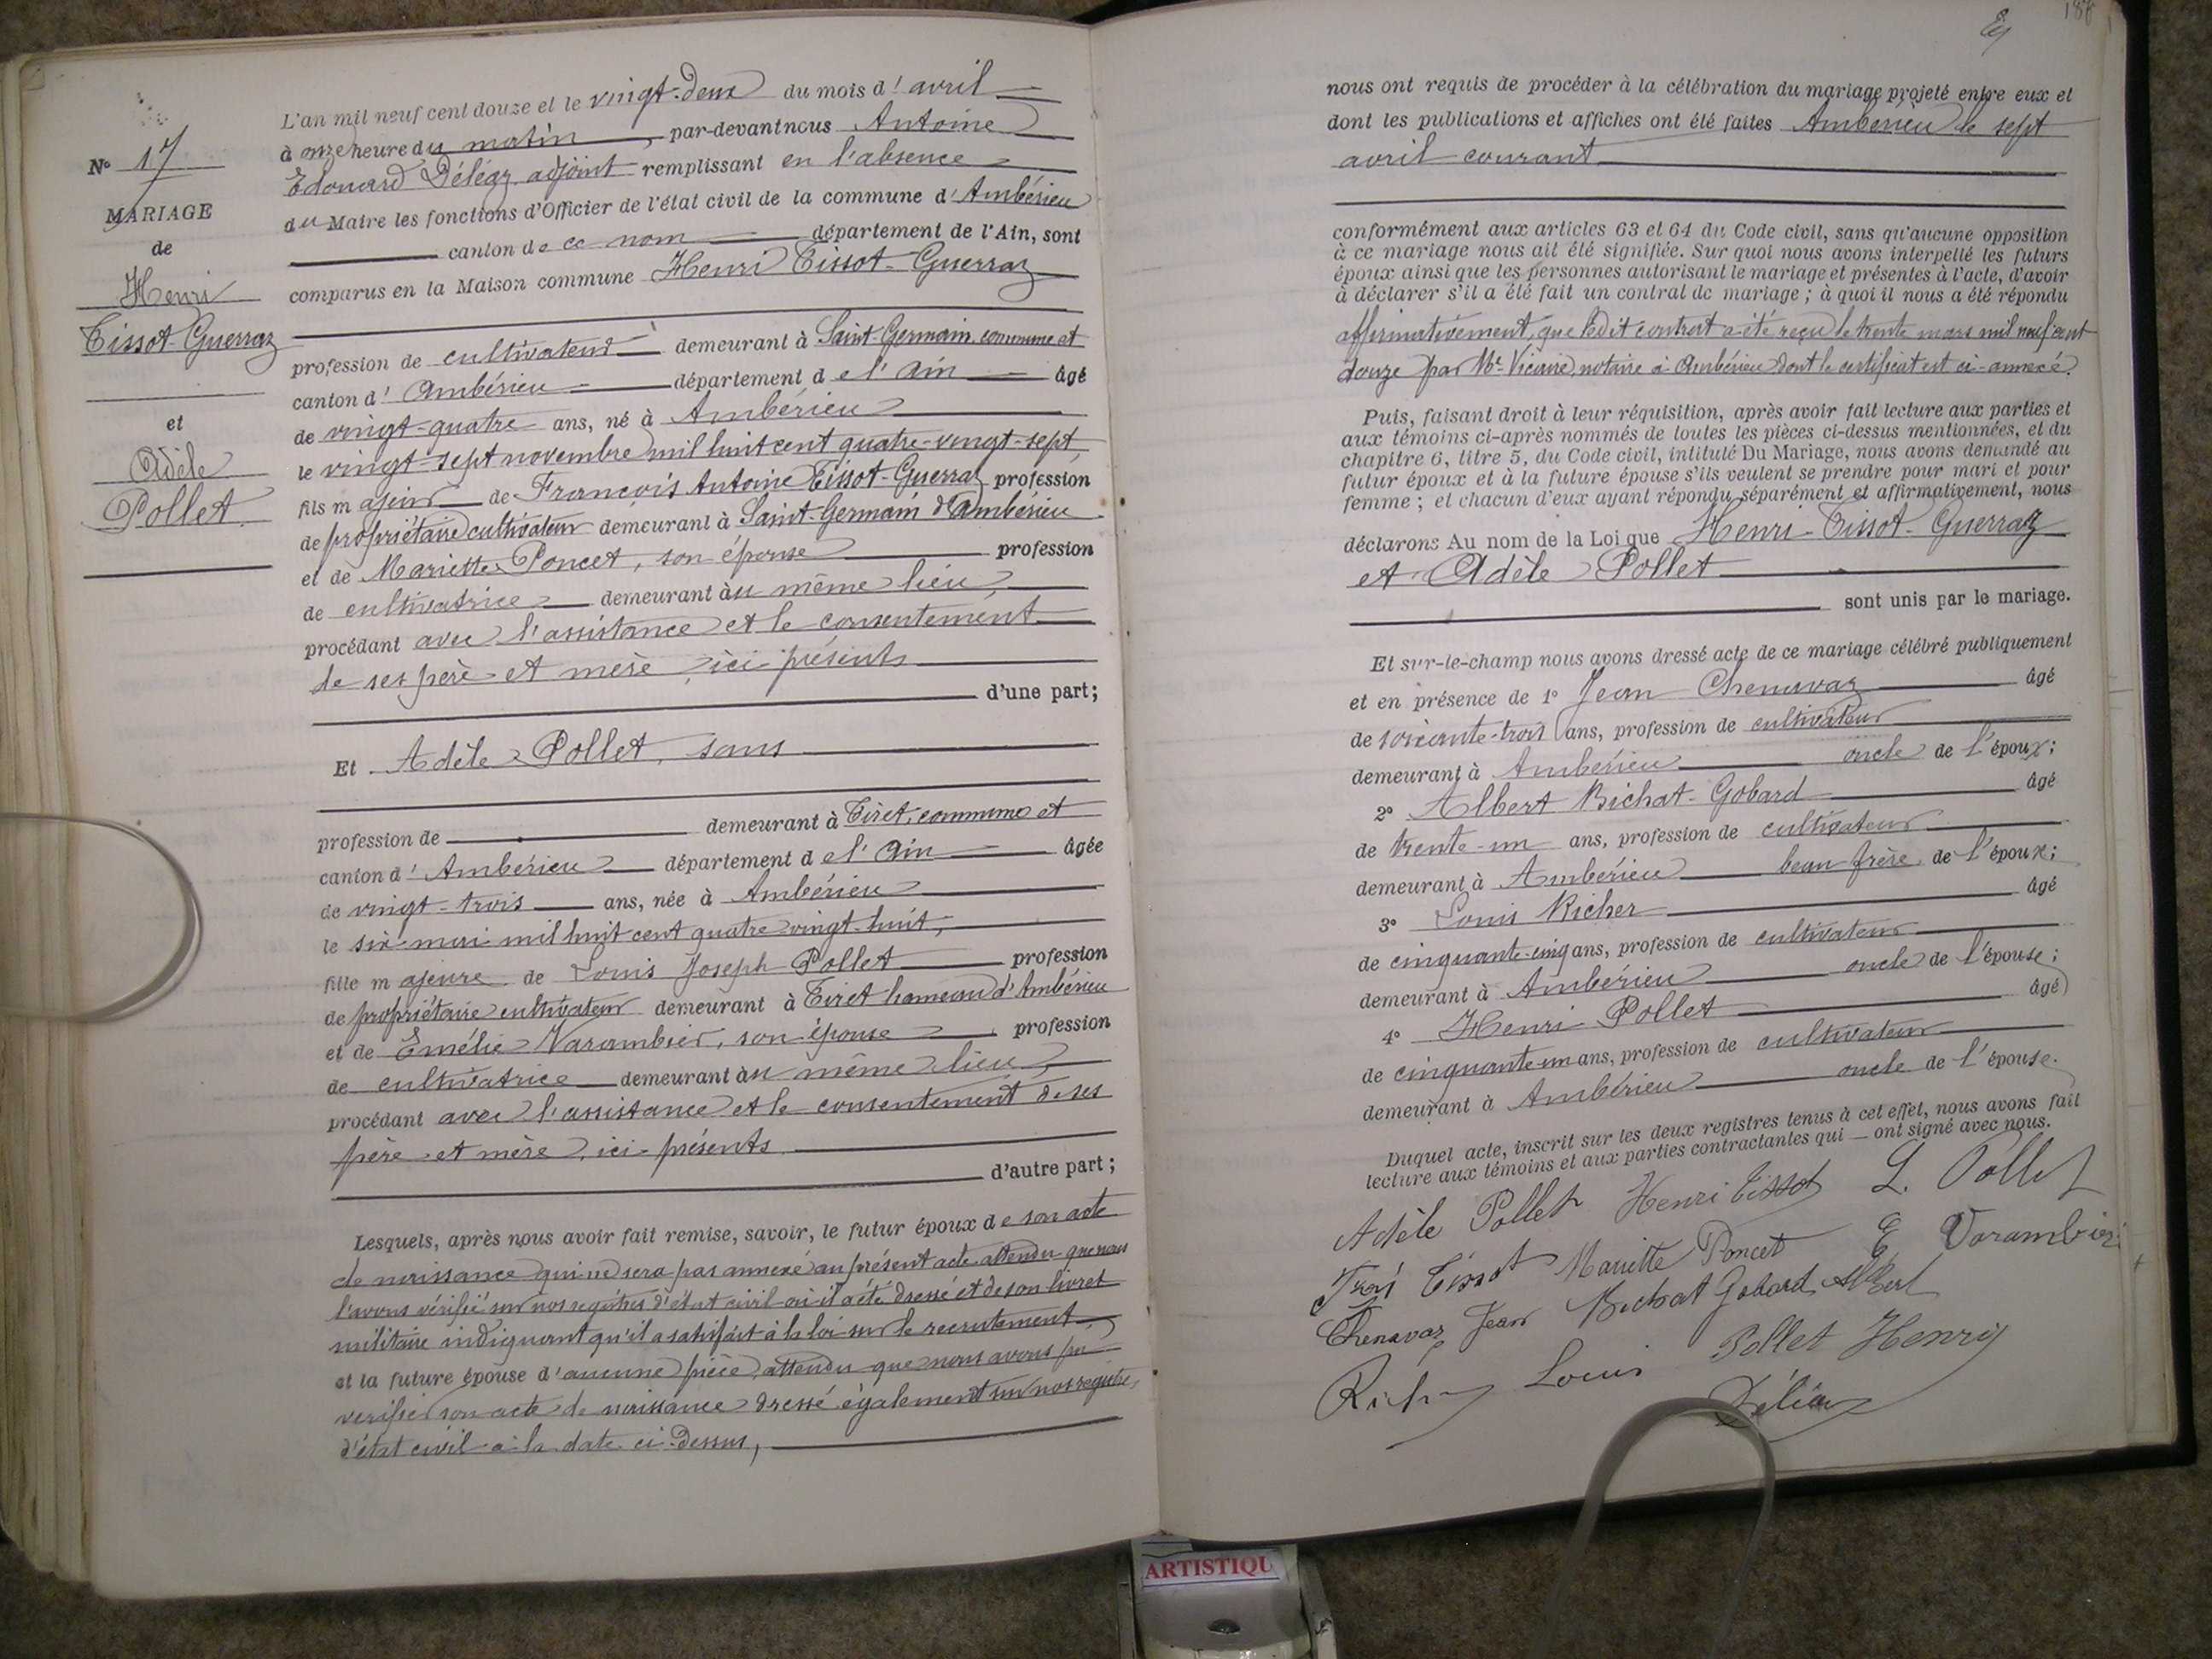 N° 17
MARIAGE
de
Henri
Tissot-Guerraz
et
Adèle
Pollet
L'an mil neuf cent douze et le vingt-deux du mois d'avril
à onze heure du matin, par-devant nous Antoine
Edouard Déléaz adjoint remplissant en l'absence
du Maire les fonctions d'Officier de l'état civil de la commune d'Ambérieu
canton de ce nom département de l'Ain, sont
comparus en la Maison commune Henri Tissot-Guerraz
profession de cultivateur demeurant à Saint-Germain, commune et
canton d'Ambérieu département de l'Ain âgé
de vingt-quatre ans, né à Ambérieu
le vingt-sept novembre mil huit cent quatre-vingt-sept,
fils majeur de François Antoine Tissot-Guerraz profession
de propriétaire cultivateur demeurant à Saint-Germain d'Ambérieu
et de Mariette Poncet, son épouse profession
de cultivatrice demeurant au même lieu,
procédant avec l'assistance et le consentement
de ses père et mère, ici présents
d'une part;
Et Adèle Pollet, sans
profession de demeurant à Tiret, commune et
canton d'Ambérieu département de l'Ain âgée
de vingt-trois ans, née à Ambérieu
le six mai mil huit cent quatre vingt-huit,
fille majeure de Louis Joseph Pollet profession
de propriétaire cultivateur demeurant à Tiret hameau d'Ambérieu
et de Emélie Varambier, son épouse profession
de cultivatrice demeurant au même lieu,
procédant avec l'assistance et le consentement de ses
père et mère, ici présents
d'autre part;
Lesquels, après nous avoir fait remise, savoir, le futur époux de son acte
de naissance qui ne sera pas annexé au présent acte attendu que nous
l'avons vérifié sur nos registres d'état civil où il a été dressé et de son livret
militaire indiquant qu'il a satisfait à la loi sur le recrutement
et la future épouse d'aucune pièce, attendu que nous avons pu
vérifier son acte de naissance dressé également sur nos registres
d'état civil à la date ci-dessus,
188
nous ont requis de procéder à la célébration du mariage projeté entre eux et
dont les publications et affiches ont été faites Ambérieu le sept
avril courant
conformément aux articles 63 et 64 du Code civil, sans qu'aucune opposition
à ce mariage nous ait été signifiée. Sur quoi nous avons interpellé les futurs
époux ainsi que les personnes autorisant le mariage et présentes à l'acte, d'avoir
à déclarer s'il a été fait un contrat de mariage; à quoi il nous a été répondu
affirmativement, que ledit contrat a été reçu le trente mars mil neuf cent
douze par Me Vicaire, notaire à Ambérieu dont le certificat est ci-annexé.
Puis, faisant droit à leur réquisition, après avoir fait lecture aux parties et
aux témoins ci-après nommés de toutes les pièces ci-dessus mentionnées, et du
chapitre 6, titre 5, du Code civil, intitulé Du Mariage, nous avons demandé au
futur époux et à la future épouse s'ils veulent se prendre pour mari et pour
femme; et chacun d'eux ayant répondu séparément et affirmativement, nous
déclarons Au nom de la Loi que Henri Tissot-Guerraz
et Adèle Pollet
sont unis par le mariage.
Et sur-le-champ nous avons dressé acte de ce mariage célébré publiquement
et en présence de 1° Jean Chenavaz âgé
de soixante-trois ans, profession de cultivateur
demeurant à Ambérieu oncle de l'époux;
2° Albert Bichat-Gobard âgé
de trente-un ans, profession de cultivateur
demeurant à Ambérieu beau frère de l'époux;
3° Louis Richer âgé
de cinquante-cinq ans, profession de cultivateur
demeurant à Ambérieu oncle de l'épouse;
4° Henri Pollet âgé
de cinquante un ans, profession de cultivateur
demeurant à Ambérieu oncle de l'épouse.
Duquel acte, inscrit sur les deux registres tenus à cet effet, nous avons fait
lecture aux témoins et aux parties contractantes qui ont signé avec nous.
Adèle Pollet Henri Tissot L. Pollet
Tissot Mariette Poncet E Varambier
Chenavaz Jean Bichat Gobard Albert
Louis Pollet Henry
Déléaz
ARTISTIQU